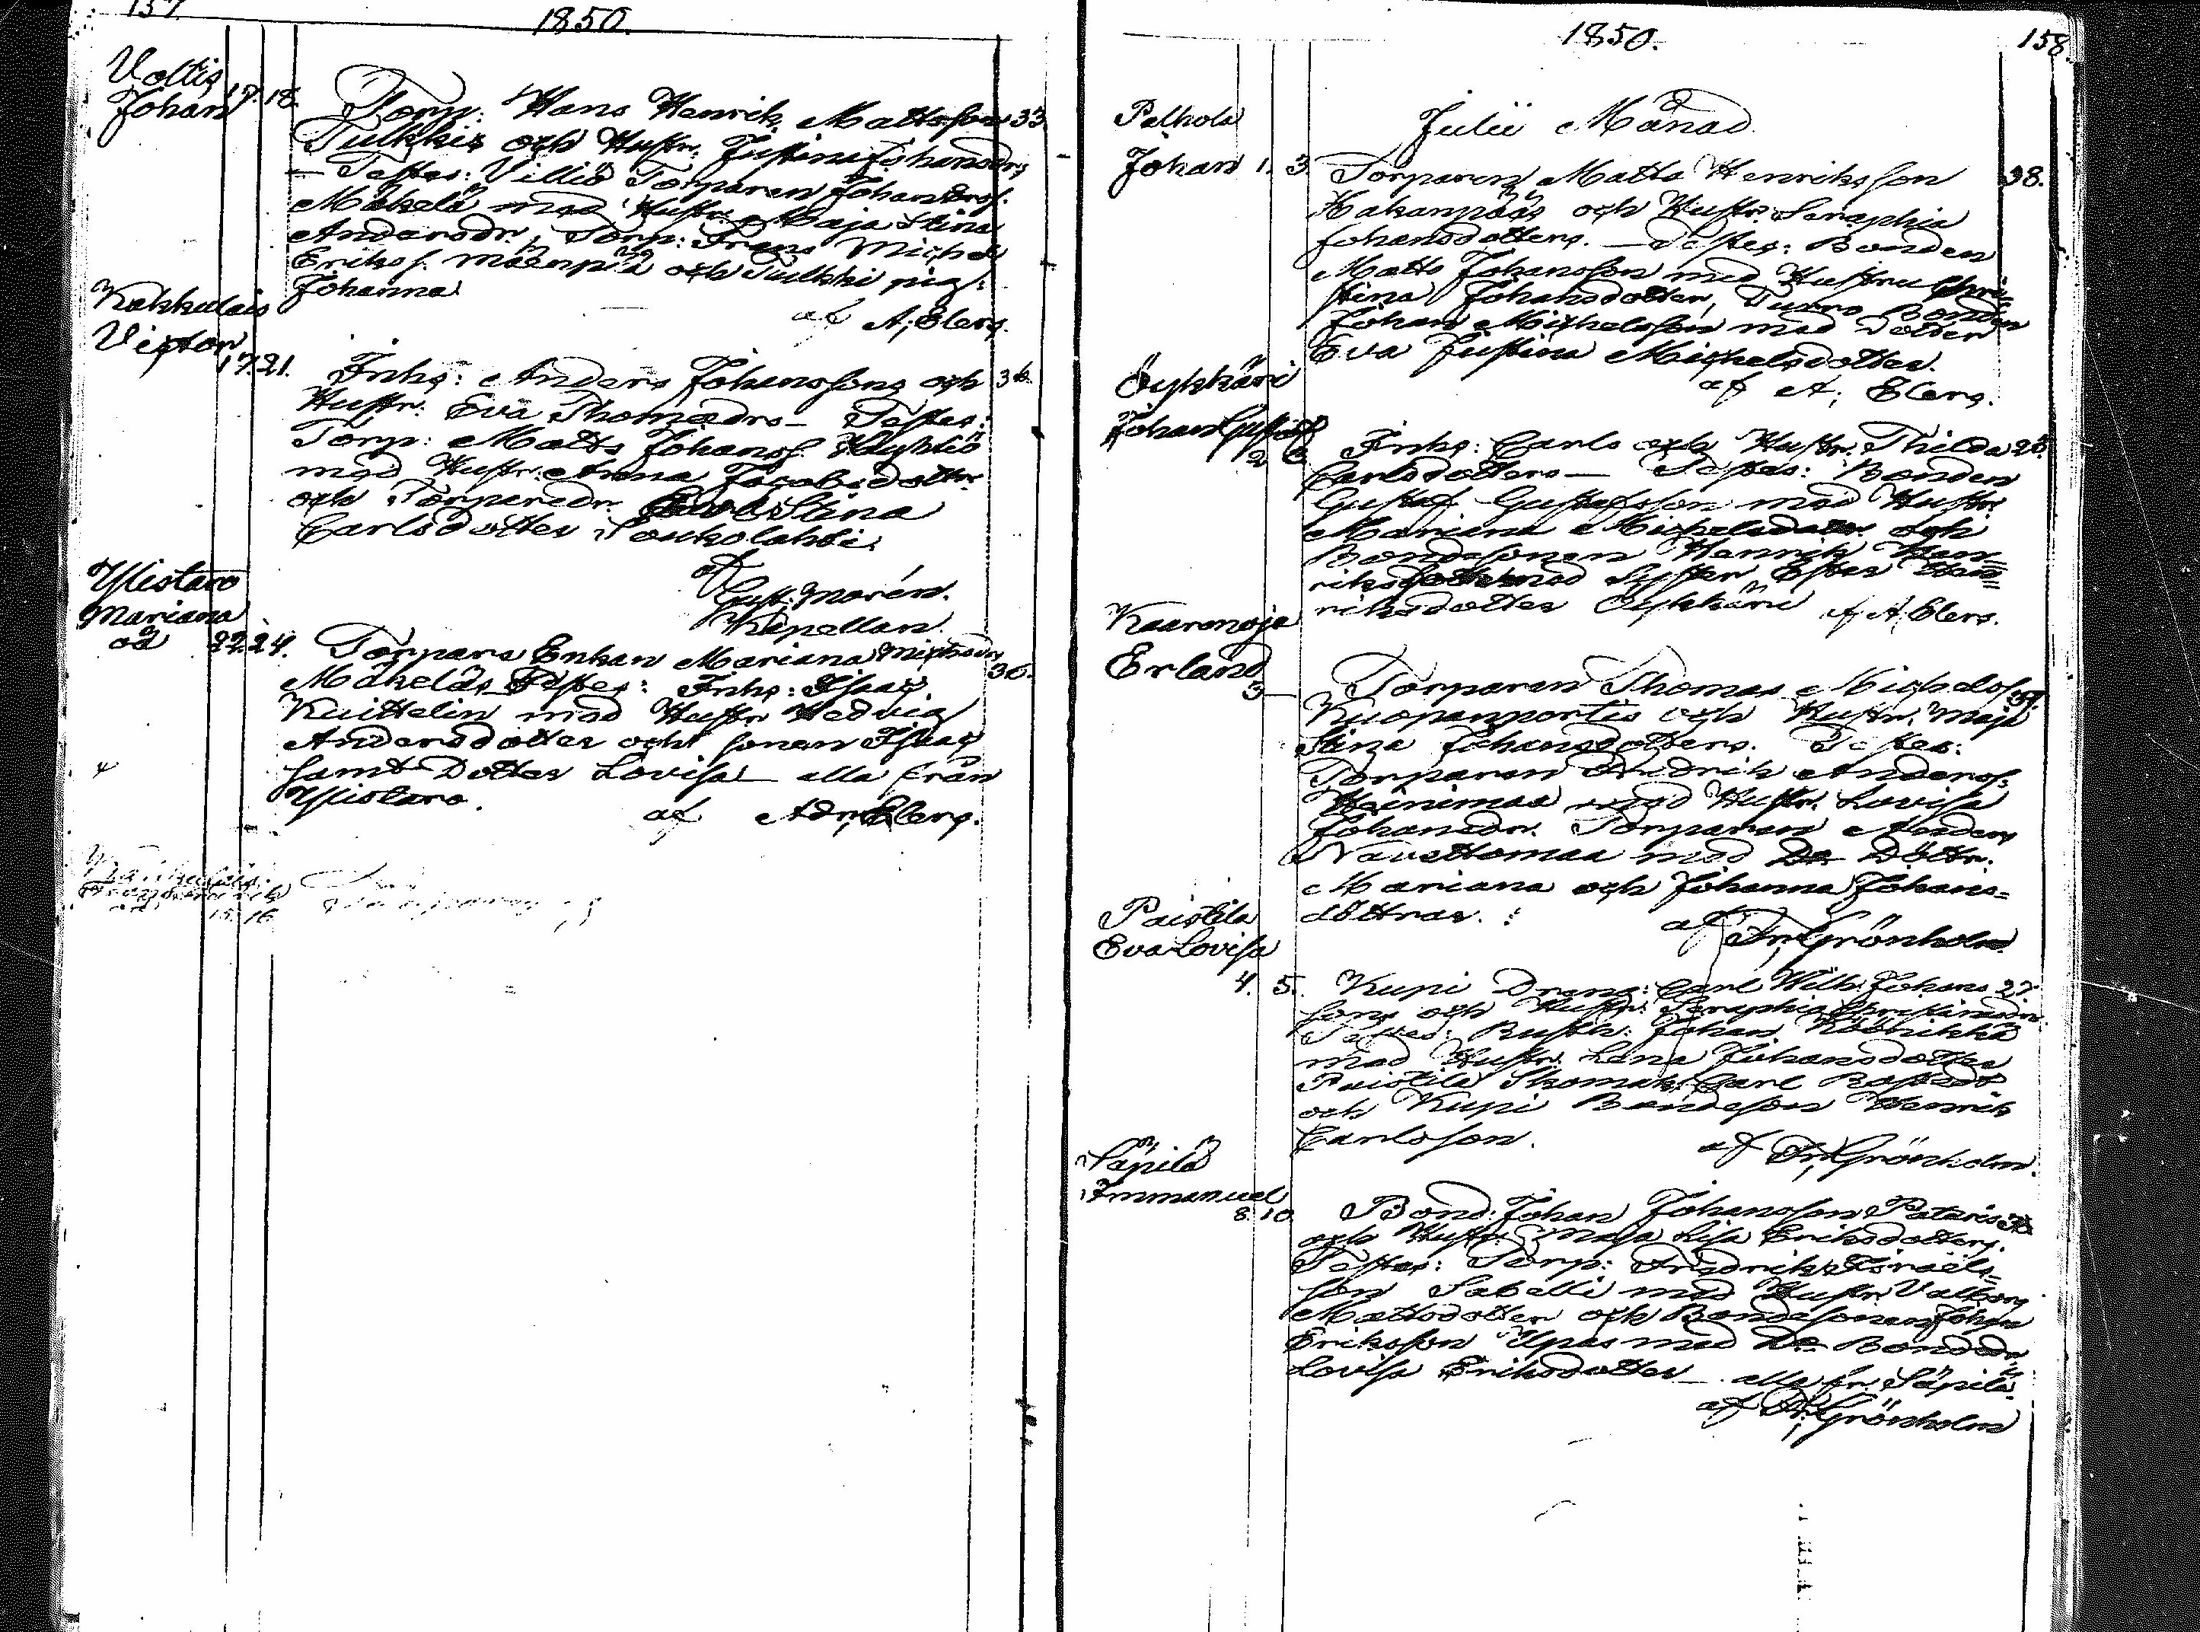 157.
1850.
Voltis
Johan
17. 18.
Torp: Hans Henrik Mattsson 33
Tulkkis och Hustr. Justina Johansdrs
— Testes: Villiö Torparen Johan Andersf.
Mäkelä med Hustr. Maja Stina
Andersdr., Torp: Frans Michel
Eriksf. Mäenpää och Tulkki pig:
Johanna
af A; Elers.
Kakkulais
Victor
17. 21.
Inhs: Anders Johanssons och 36.
Hustr. Eva Thomædrs — Testes:
Torp: Matts Johansf. Käyhtiö
med Hustr. Anna Jacobsdottr.
och Torparedr. Stina
Carlsdotter Soukolahti.
af
Gust: Norén.
Kapellan.
Ylistaro
Mariana
oä 22. 24.
Torpare Enkan Mariana Michsdrs 36.
Mäkeläs Testes: Inhs: Isaac
Kuittelin med Hustr Hedvig
Andersdotter och sonen Isaac
samt Dotter Lovisa — alla från
Ylistaro.
af Adr; Elers.
oä 15. 16.
1850.
158
Julii Månad
Palhola
Johan 1. 3.
Torparen Matts Henriksson 38.
Hakanpääs och Hustr. Seraphia
Johansdotters. — Testes: Bonden
Matts Johansson med Hustru Chris=
tina Johansdotter, Tuuro Bonden
Johan Michelsson med Dotter
Eva Justina Michelsdotter.
af A; Elers.
Öykkäri
Johan Gustaf
2. 6.
Inhs: Carls och Hustr. Thilda 25.
Carlsdotters — Testes: Bonden
Gustaf Gustafsson med Hustr.
Mariana Michelsdotter och
Bondesonen Henrik Hen=
riksson med Syster Ester Hen=
riksdotter Öykkäri af A; Elers.
Kaaronoja
Erland
3 —
Torparen Thomas Michelsf.
Kuopanportis och Hustr. Maja
Stina Johansdotters. Testes:
Torparen Fredrik Andersf.
Heinimaa med Hustr. Lovisa
Johansdr. Torparen Anders
Navettamaa med De Döttr.
Mariana och Johanna Johans=
döttrar.
af Fr; Grönholm.
Paistila
Eva Lovisa
4. 5.
Kupi Dreng: Carl Wilh: Johans 27
sons och Hustr: Seraphia Christinædrs.
Testes: Rustk: Johan Köönikkä
med Hustr. Lena Johansdotter
Paistila Skomak: Carl
och Kupi Bondeson Henrik
Carlsson.
af Fr; Grönholm.
Säpilä
Immanuel
8. 10.
Bond: Johan Johansson Pataris
och Hustr. Maja Lisa Eriksdotters.
Testes: Torp: Fredrik Israels=
son Sabelli med Hustr Valborg
Mattsdotter och Bondesonen Johan
Eriksson Ypas med De Bondedr
Lovisa Eriksdotter — alla fr. Säpilä.
af Fr; Grönholm